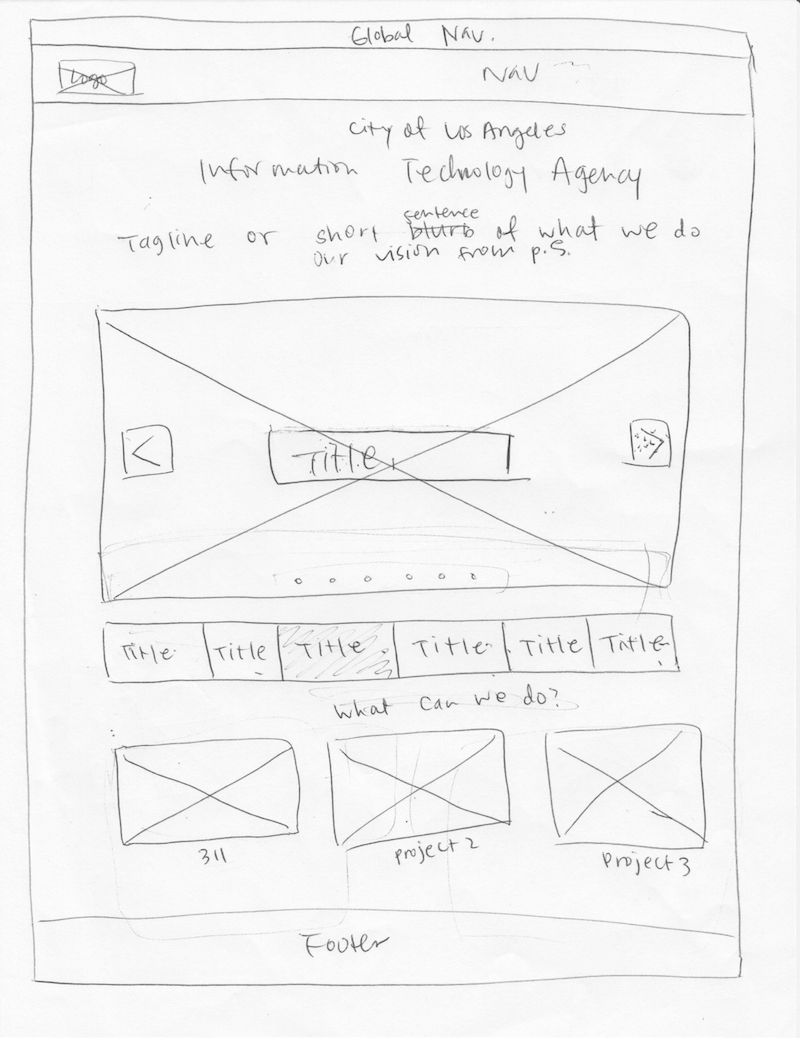 Global Nav.
Logo
Nav
City of Los Angeles
Information Technology Agency
sentence
Tagline or short blurb of what we do
our vision from p.S.
<
Title
>
Title Title Title Title Title Title
What can we do?
311 project 2 project 3
Footer